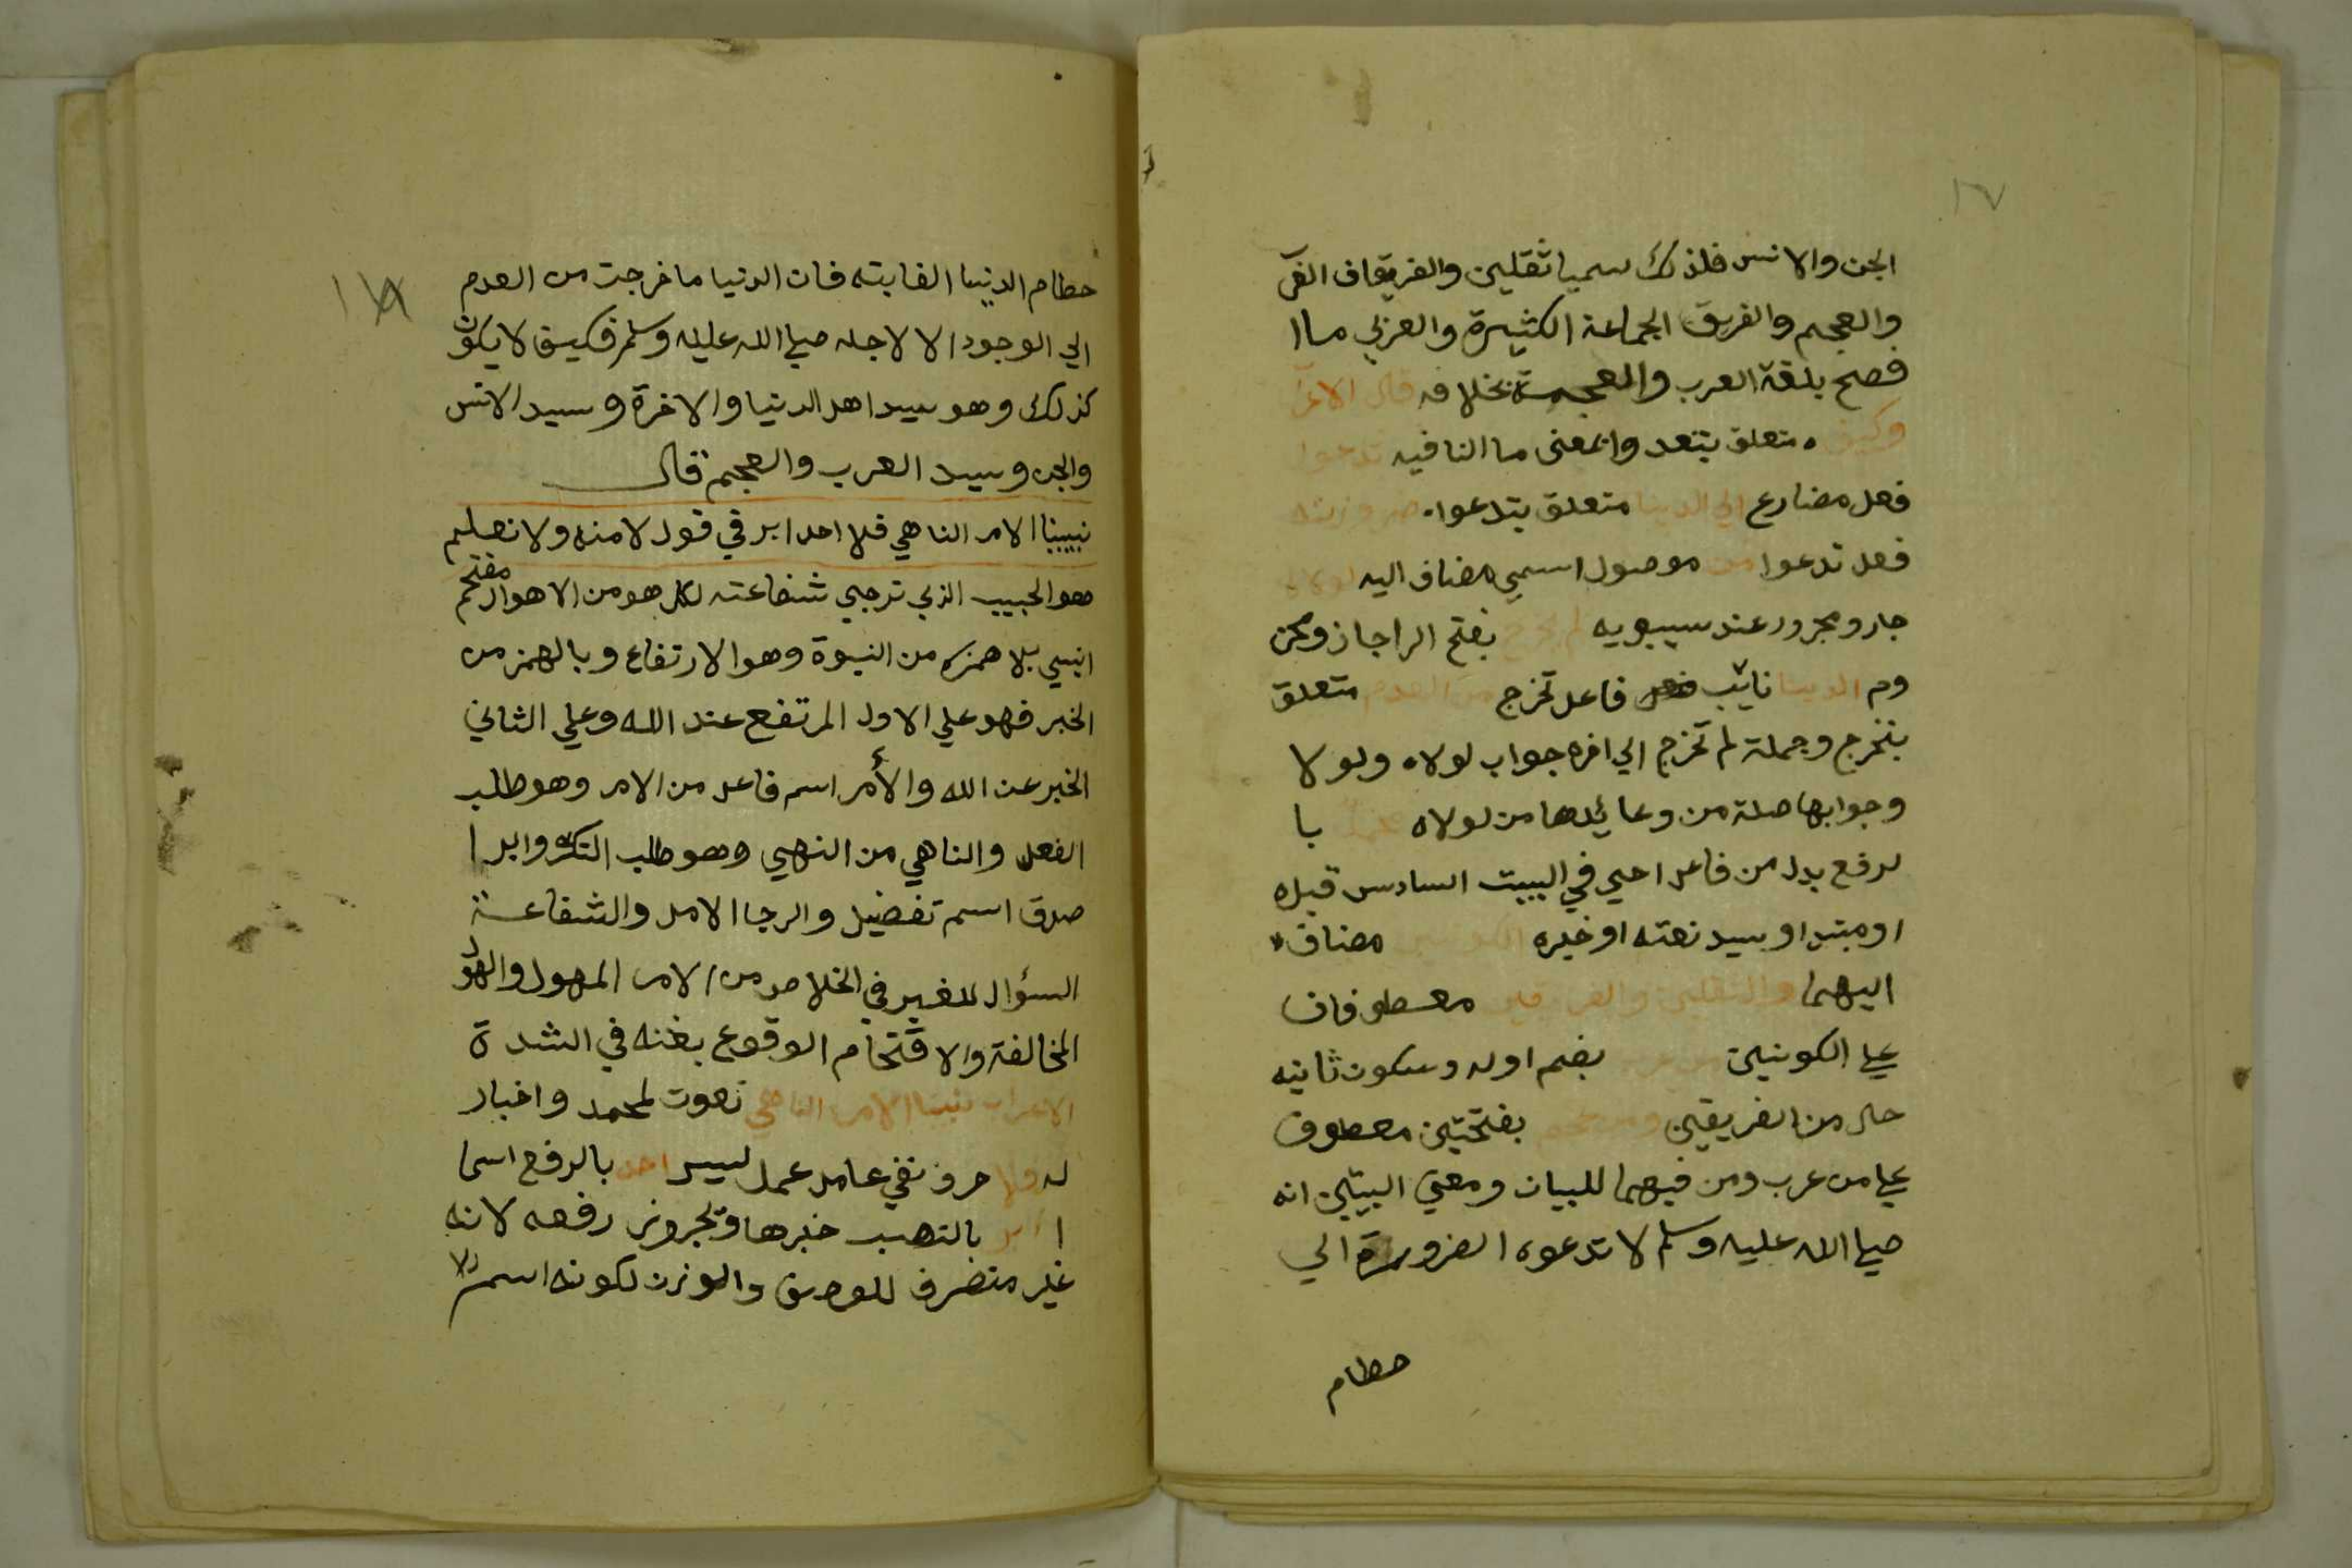 ١٧
الجن والانس فلذلك سميا ثقلين والفريقان العر
والعجم والفريق الجماعة الكثيرة والعربي ما ا
فصح بلغة العرب والعجمة بخلافه قال الاعرا
وكيف متعلق بتدعوا بمعنى ما النافيه تدعوا
فعل مضارع الي الدنيا متعلق بتدعوا ضرورته
فعل تدعوا من موصول اسمي مضاف اليه لولاه
جار ومجرور عند سيبويه لم تخرج بفتح الرا جاز وممن
وم الدنيا نائب فاعل تخرج من العدم متعلق
بتخرج وجملة لم تخرج الي اخره جواب لولاه ولولا
وجوابها صلة من وعائدها من لولاه محمد با
لرفع بدل من فاعل احيي في البيت السادس قبله
او مبتدا وسيد نعته او خبره الكونين مضاف
اليهما والثقلين والفريقين معطوفان
علي الكونين من عرب بضم اوله وسكون ثانيه
حال من الفريقين ومن عجم بفتحتين معطوف
علي من عرب ومن فيهما للبيان ومعني البيتين انه
صلي الله عليه وسلم لا تدعوه الضرورة الي
حطام
١٨
حطام الدنيا الفانيه فان الدنيا ما خرجت من العدم
الي الوجود الا لاجله صلي الله عليه وسلم فكيف لا يكون
كذلك وهو سيد اهل الدنيا والاخرة وسيد الانس
والجن وسيد العرب والعجم قال
نبينا الامر الناهي فلا احد ابر في قول لا منه ولا نعم
هو الحبيب الذي ترجي شفاعته لكل هو من الاهوال مقتحم
النبي بلا همزه من النبوة وهو الارتفاع وبالهمز من
الخبر فهو علي الاول المرتفع عند الله وعلي الثاني
الخبر عن الله والأمر اسم فاعل من الامر وهو طلب
الفعل والناهي من النهي وهو طلب الترك وابر ا
صدق اسم تفضيل والرجا الامل والشفاعة
السؤال للغير في الخلاص من الامر المهول والهول
المخالفة والاقتحام الوقوع بغته في الشدة
الاعراب نبينا الامر الناهي نعوت لمحمد واخبار
له ولا حرف نفي عامل عمل ليس احد بالرفع اسما
ابر بالنصب خبرها ويجوز رفعه لانه
غير منصرف للوصف والوزن لكونه اسم